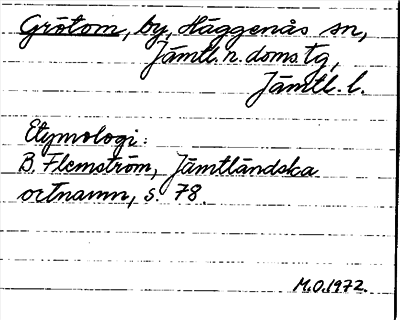 Grötom, by, Häggenås sn,
Jämtl. n. doms. tg,
Jämtl. l.
Etymologi:
B. Flemström, Jämtländska
ortnamn, s. 78.
M.O.1972.